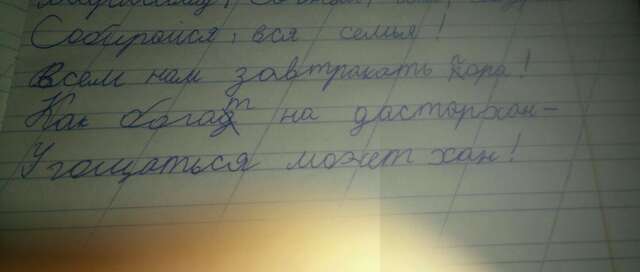 Собирайся, вся семья!
Всем нам завтракать пора!
Как богат на дасторхан-
Угощаться может хан!